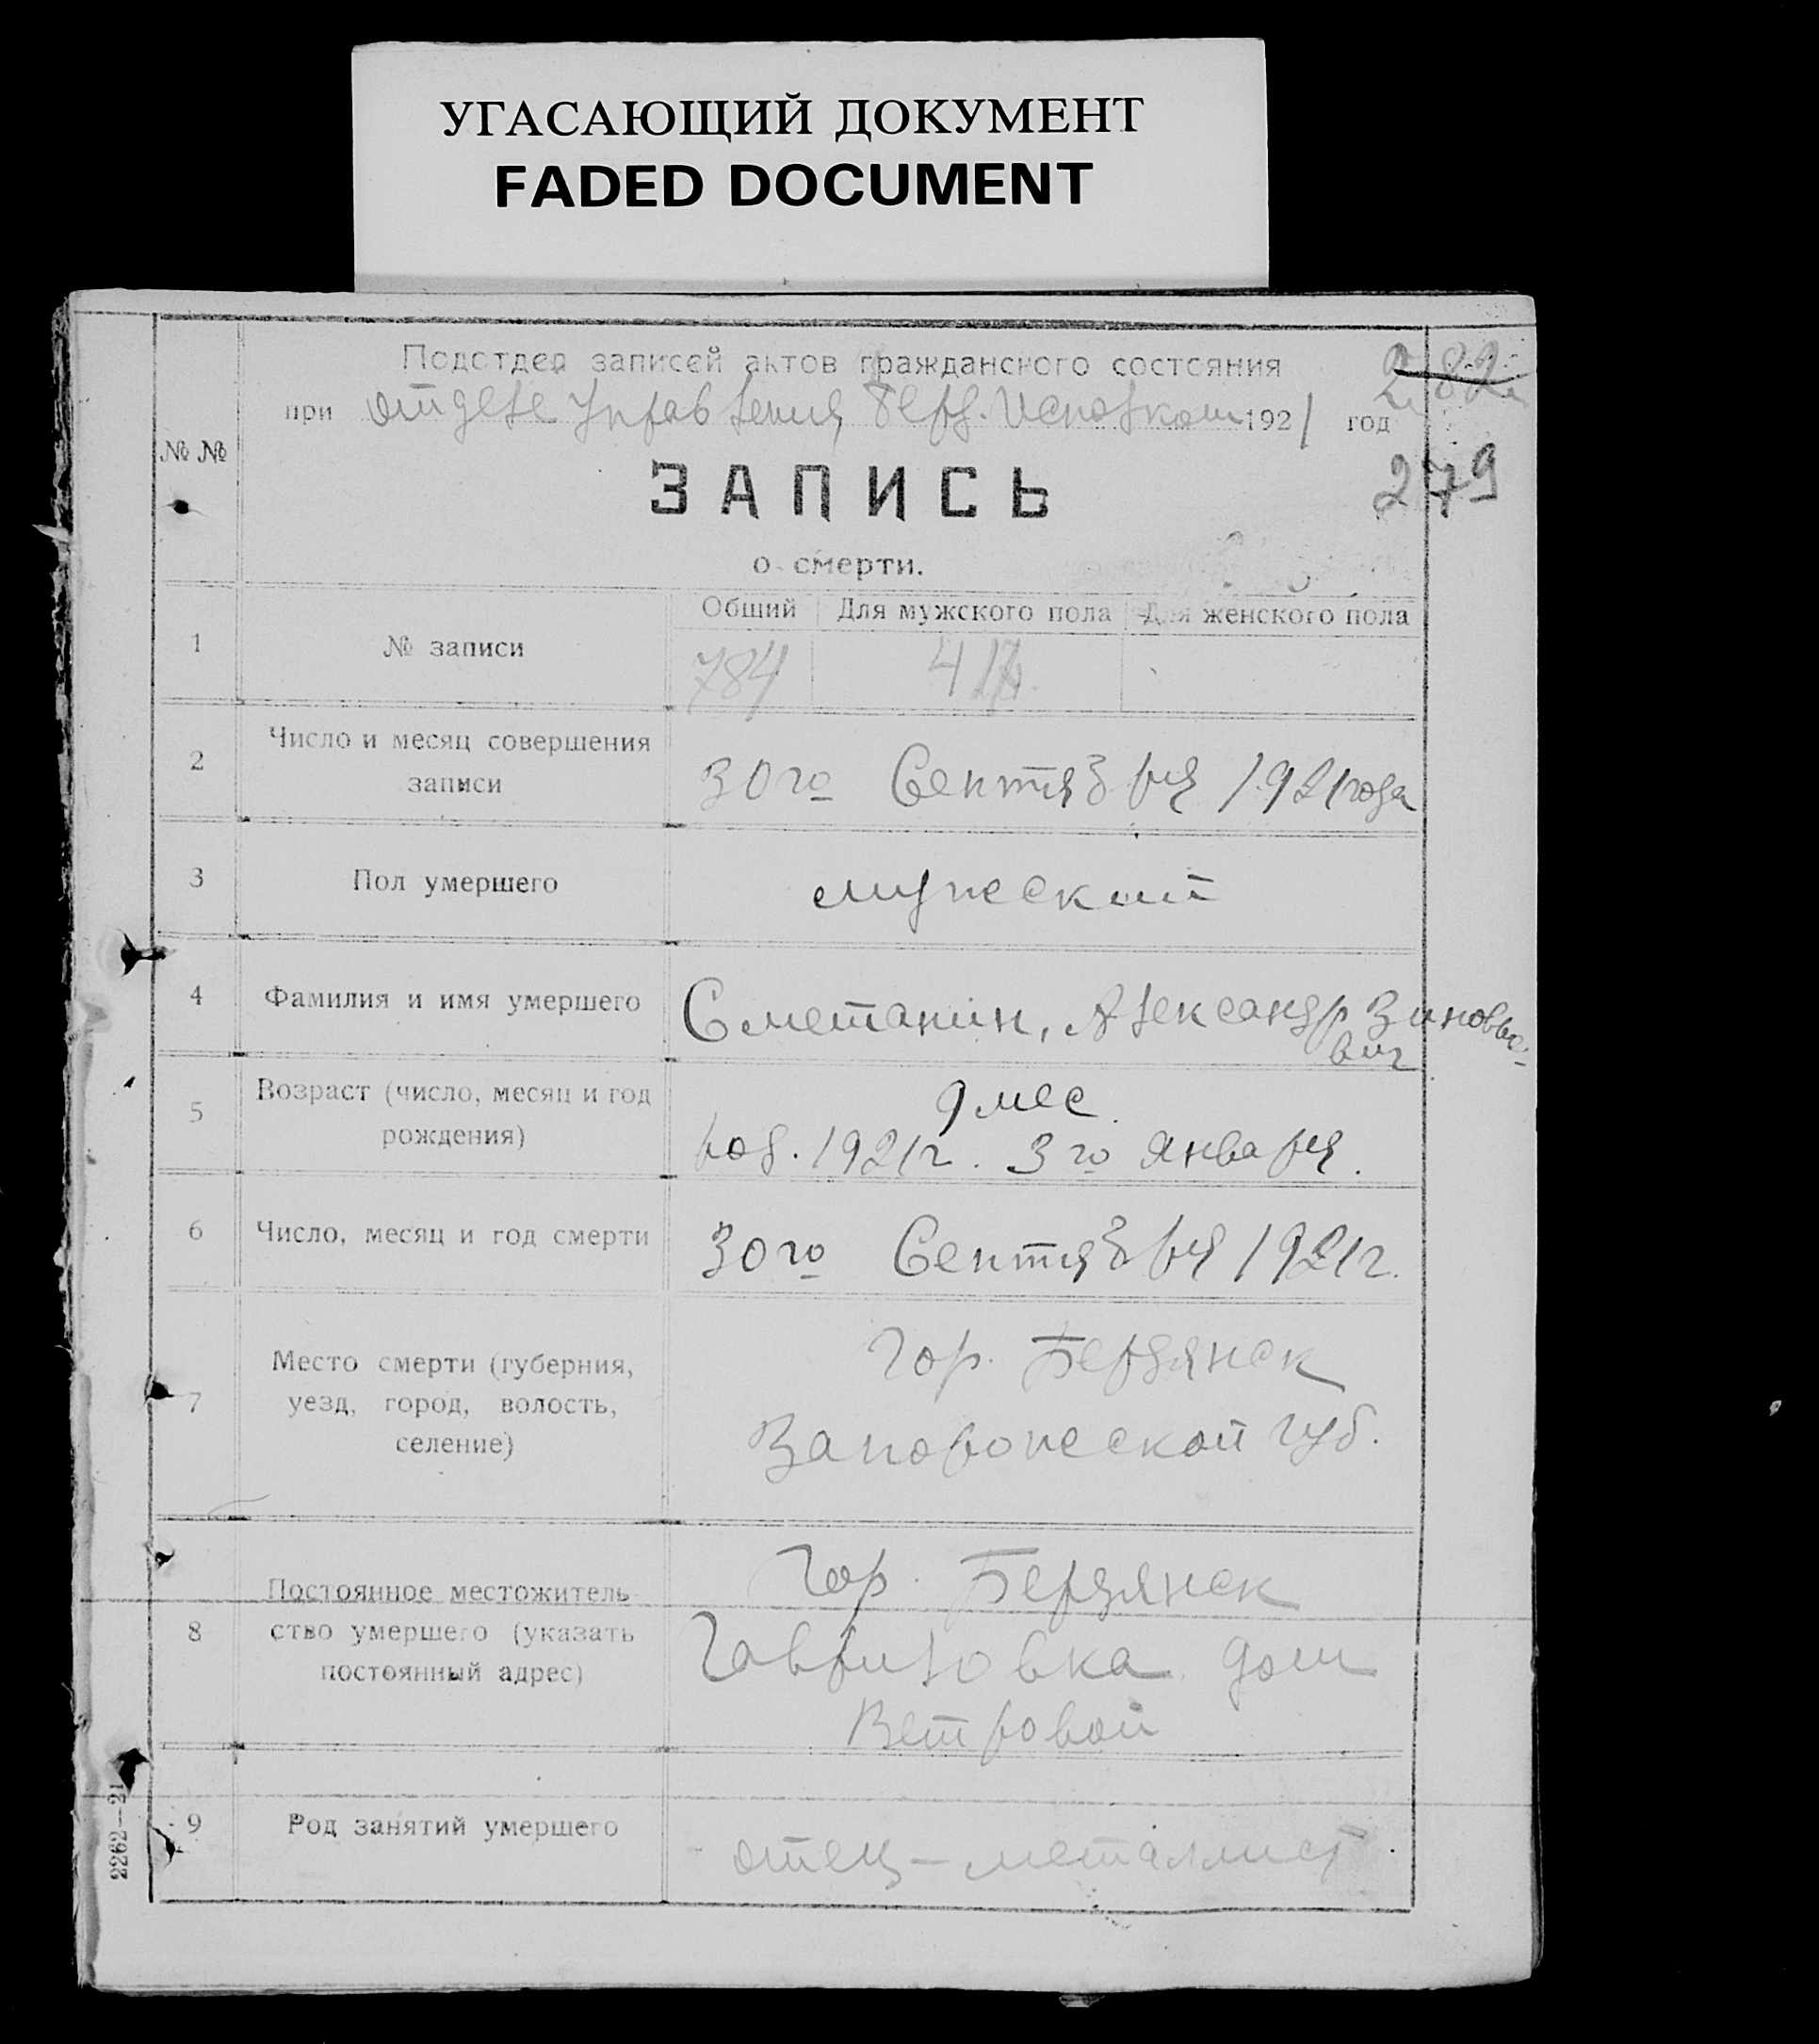 УГАСАЮЩИЙ ДОКУМЕНТ
FADED DOCUMENT
Подотдел записей актов гражданского состояния
282
при отделе Управления Берд. Исполкома 1921 год
№ №
279
ЗАПИСЬ
о смерти.
Общий Для мужского пола Для женского пола
1 № записи 784
2 Число и месяц совершения
записи
30го Сентября 1921 года
3 Пол умершего мужеской
4 Фамилия и имя умершего Сметанин, Александр Зиновье-
вич
5 Возраст (число, месяц и год
рождения)
9 мес
род. 1921 г. 3го Января.
6 Число, месяц и год смерти 30го Сентября 1921 г.
7 Место смерти (губерния,
уезд, город, волость,
селение)
Гор. Бердянск
Запорожеской губ.
8 Постоянное местожитель-
ство умершего (указать
постоянный адрес)
Гор. Бердянск
Гавриловка дом
Ветровой
9 Род занятий умершего отец — металлист.
2262—21